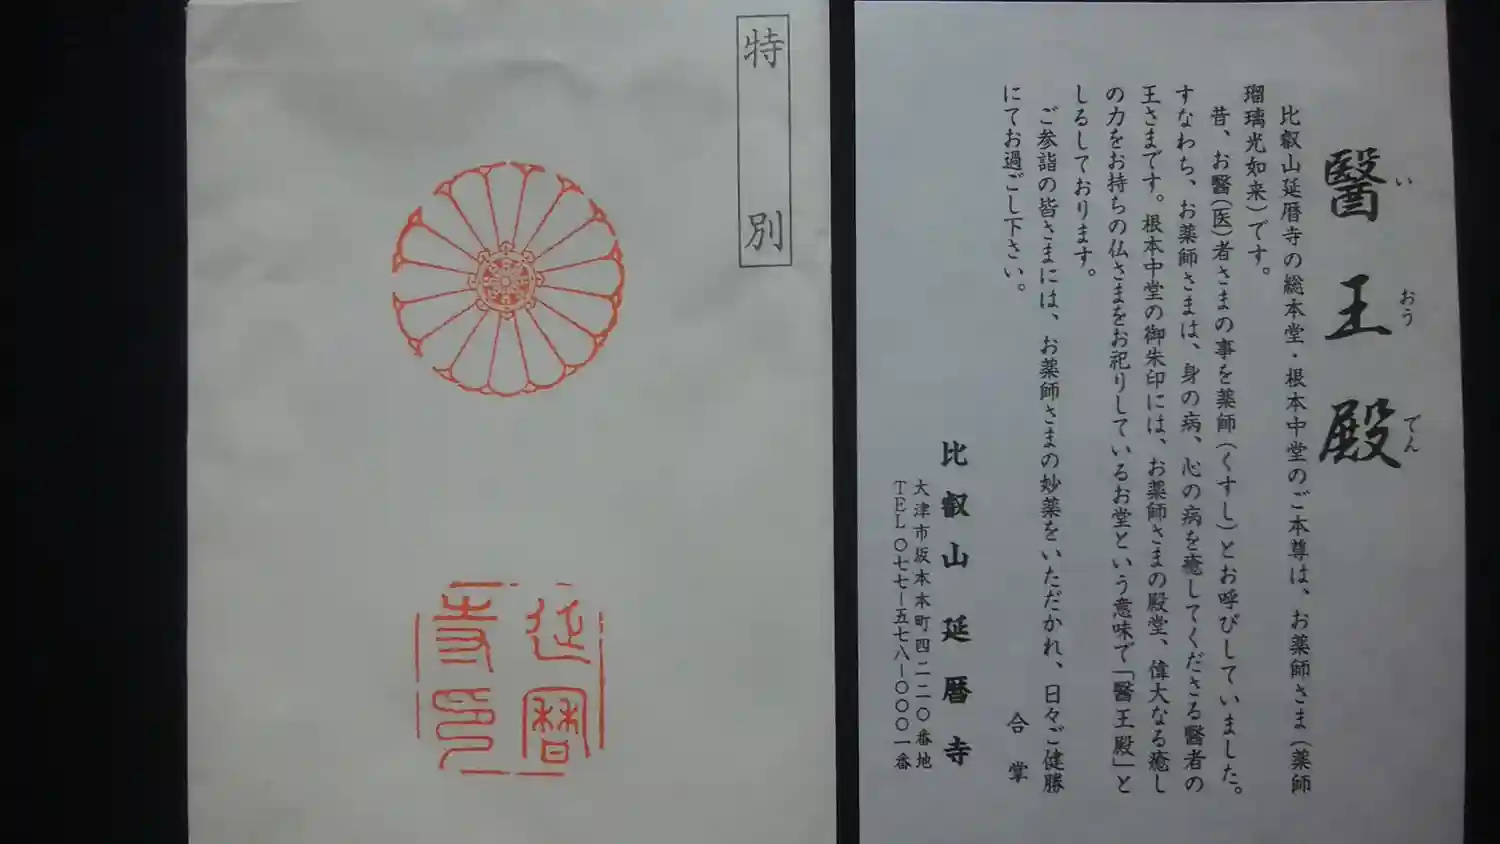 特別
延暦
寺印
醫王殿
いおうでん
比叡山延暦寺の総本堂・根本中堂のご本尊は、お薬師さま(薬師
瑠璃光如来)です。
昔、お醫(医)者さまの事を薬師(くすし)とお呼びしていました。
すなわち、お薬師さまは、身の病、心の病を癒してくださる醫者の
王さまです。根本中堂の御朱印には、お薬師さまの殿堂、偉大なる癒し
の力をお持ちの仏さまをお祀りしているお堂という意味で「醫王殿」と
しるしております。
ご参詣の皆さまには、お薬師さまの妙薬をいただかれ、日々ご健勝
にてお過ごし下さい。
合掌
比叡山延暦寺
大津市坂本本町四二二〇番地
TEL〇七七―五七八―〇〇〇一番